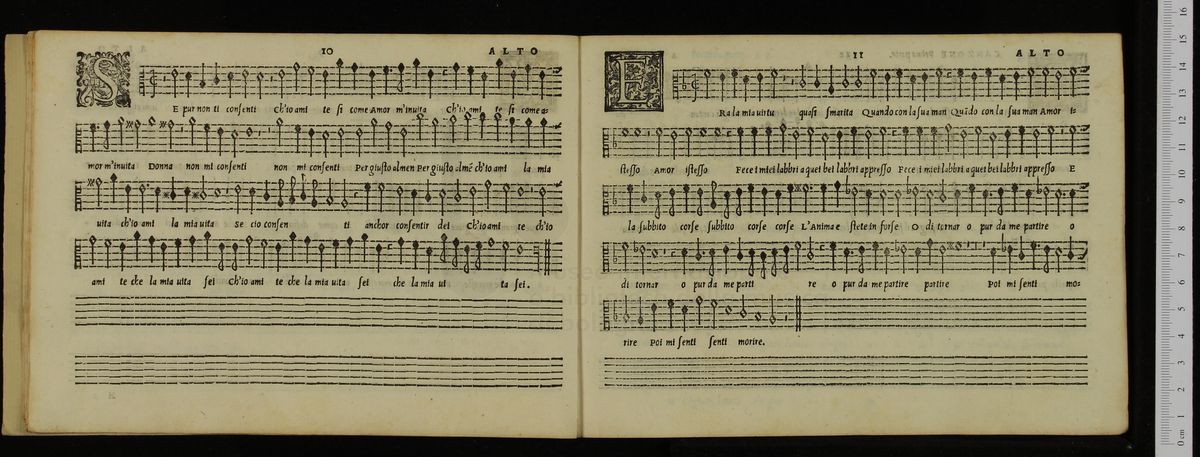 10 ALTO
SE pur non ti consenti Ch'io ami te si come Amor m'inuita Ch'io ami te si come a=
mor m'inuita Donna non mi consenti non mi consenti Per giusto almen Per giusto almē ch'io ami la mia
uita ch'io ami la mia uita se cio consen ti anchor consentir dei Ch'io ami te ch'io
ami te che la mia uita sei Ch'io ami te che la mia uita sei che la mia ui ta sei.
11 ALTO
ERa la mia uirtu quasi smarita Quando con la sua man Quādo con la sua man Amor is
stesso Amor istesso Fece i miei labbri a quei bei labbri appresso Fece i miei labbri a quei bei labbri appresso E
la subbito corse subbito corse corse L'anima e stete in forse O di tornar o pur da me partire o
di tornar o pur da me parti re o pur da me partire partire Poi mi senti mo=
rire Poi mi senti senti morire.